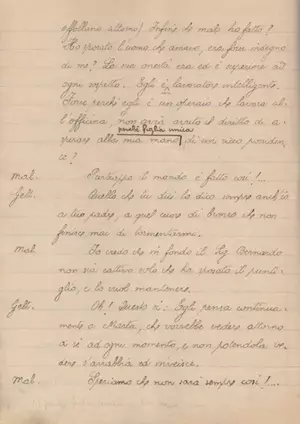 affollano attorno! Infine che male ho fatto?
Ho sposato l'uomo che amavo, era forse indegno
di me? La sua onestà era ed è superiore ad
ogni sospetto. Egli è lavoratore intelligente.
Forse perché egli è un operaio che lavora al=
l'officina, non avrà avuto il diritto di a=
perché figlia unica
spirare alla mia mano, di un ricco
Mal. Purtroppo il mondo è fatto così!...
Gelt. Quello che tu dici lo dico sempre anch'io
a tuo padre, a quel cuore di bronzo che non
finisce mai di tormentarmi.
Mal. Io credo che in fondo il Sig. Bernardo
non sia cattivo solo che ha sposato il punti=
glio, e lo vuol mantenere.
Gelt. Oh! Questo sì: Egli pensa continua
mente a Marta, che vorrebbe vedere attorno
a sé ad ogni momento, e non potendola ve=
dere s'arrabbia ed
Mal. Speriamo che non sarà sempre così!...